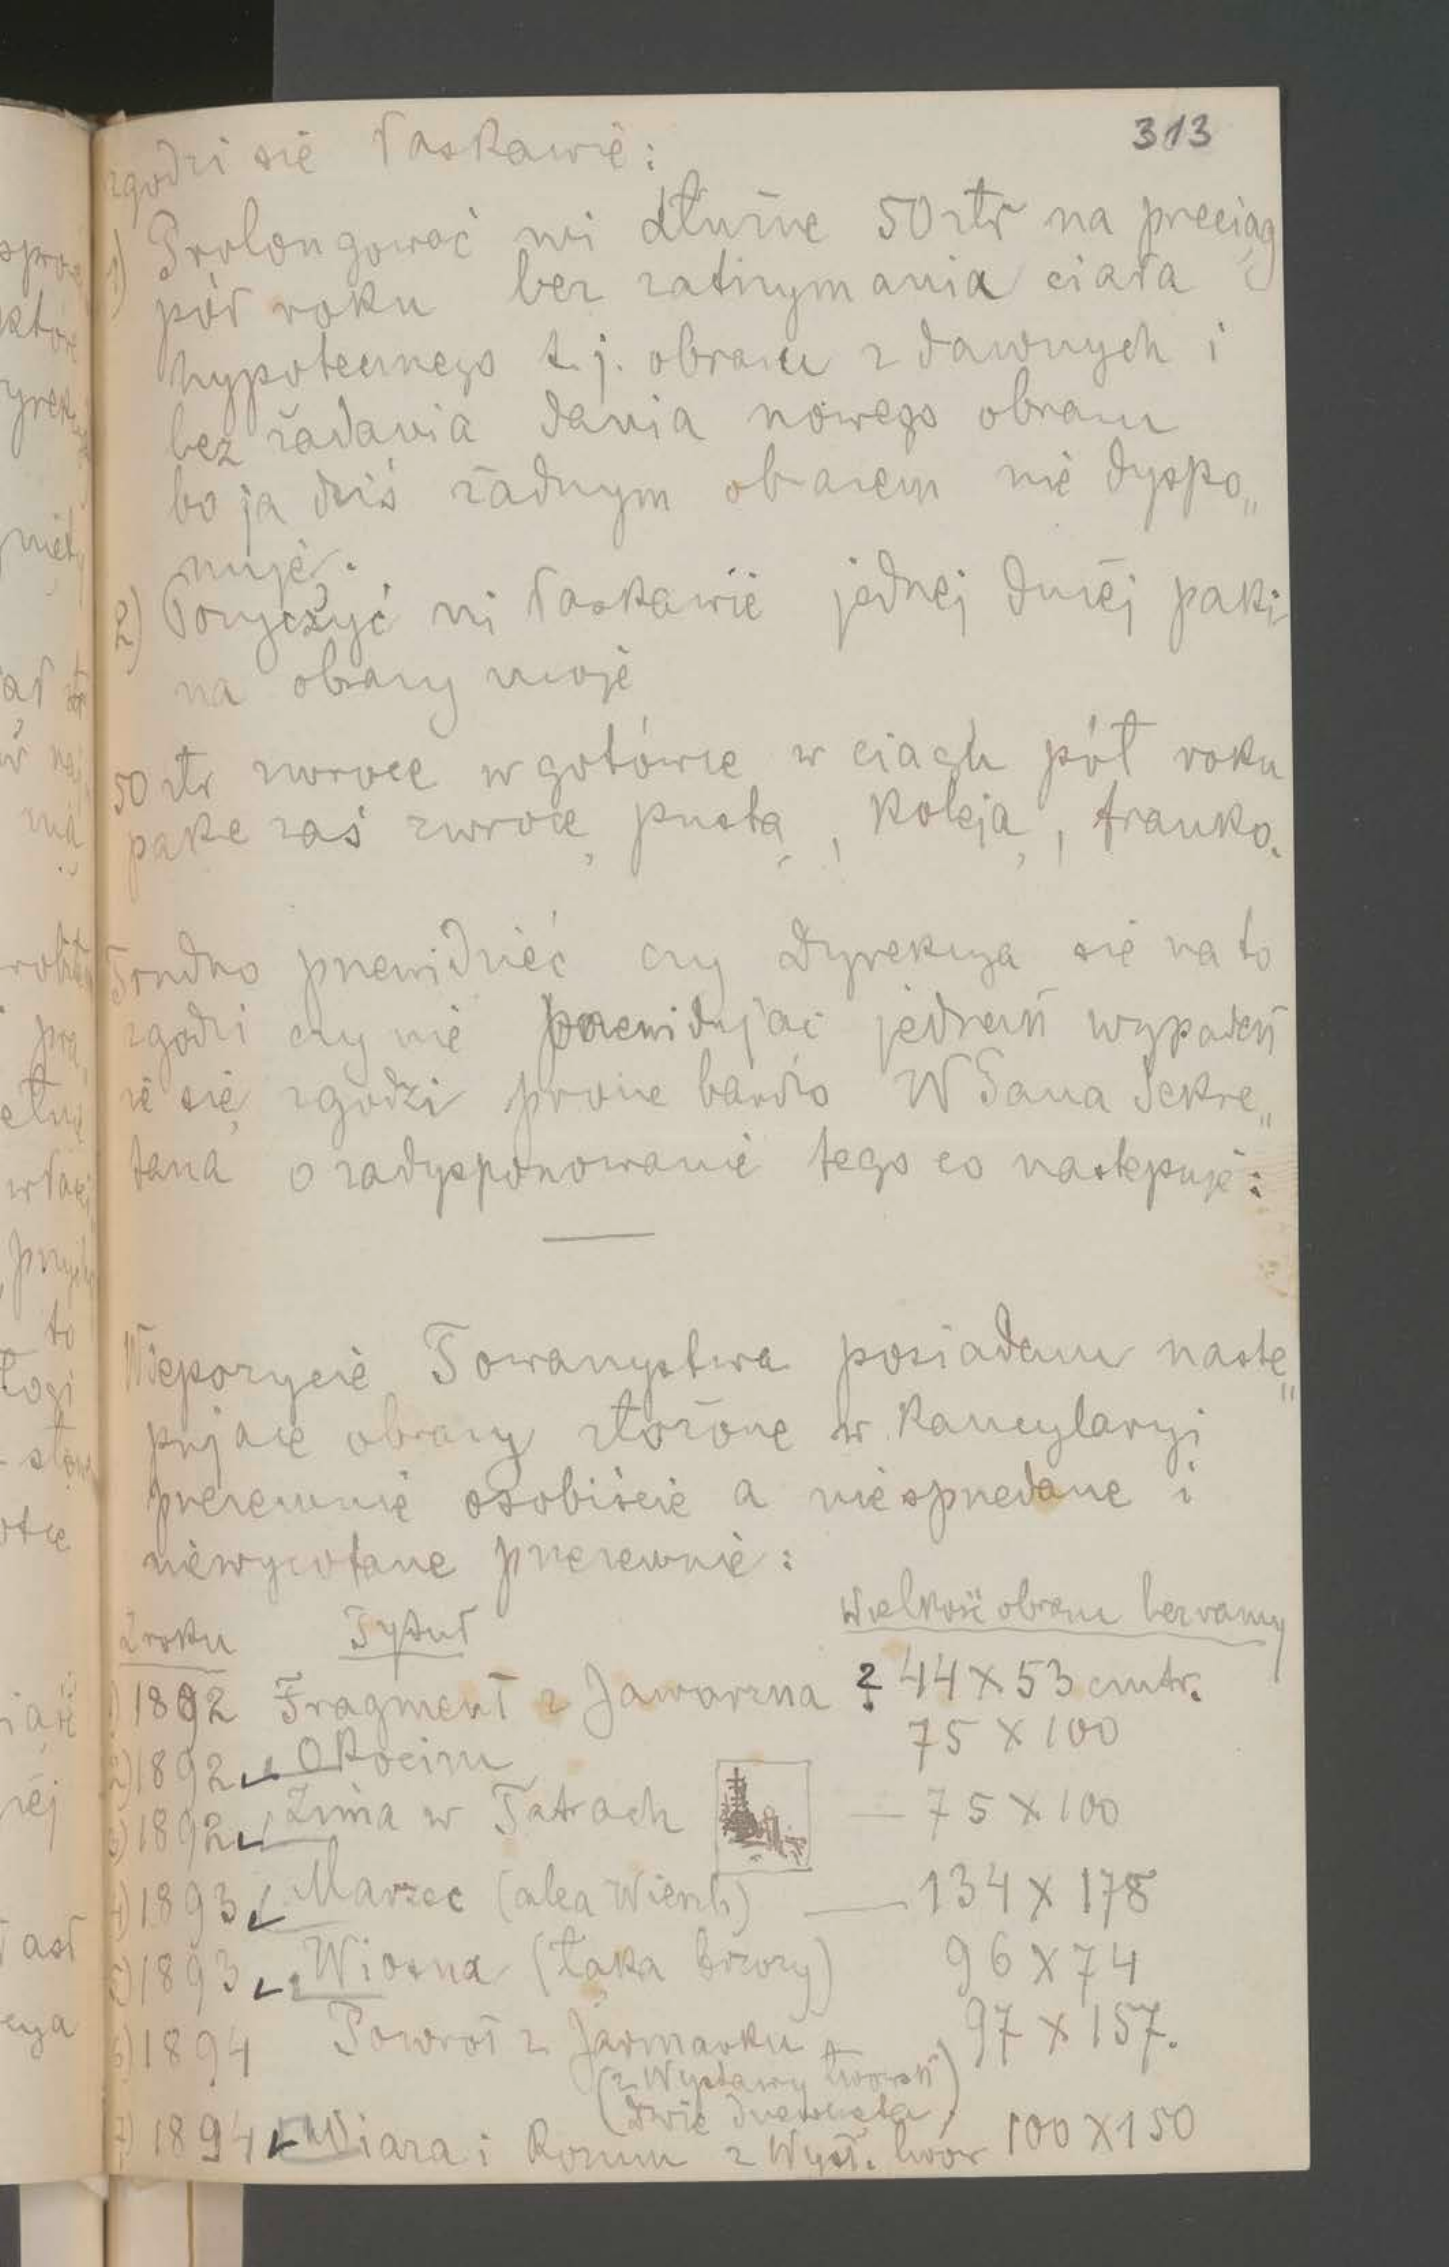 313
zgodzi się łaskawie:
1) Prolongować mi dłużne 50 złr na przeciąg
pół roku bez zatrzymania ciała
hypotecznego t.j. obrazu z dawnych i
bez żądania dania nowego obrazu
bo ja dziś żadnym obrazem nie dyspo„
nuję.
2) Pożyczyć mi łaskawie jednej dużej paki
na obrazy moje
50 złr zwrócę w gotówce w ciągu pół roku
pakę zaś zwrócę pustą, koleją, franko.
Trudno przewidzieć czy Dyrekcya się na to
zgodzi czy nie przewidując jednak wypadek
że się zgodzi proszę bardzo WPana Sekre„
tarza o zadysponowanie tego co następuje:
W depozycie Towarzystwa posiadam nastę„
pujące obrazy złożone w Kancylaryi
przezemnie osobiście a niesprzedane i
niewycofane przezemnie:
Z roku Tytuł Wielkość obrazu bez ramy
1) 1892 Fragment z Jaworzna ? 44 x 53 cmtr.
2) 1892 Okocim 75 x 100
3) 1892 Zima w Tatrach — 75 x 100
4) 1893 Marzec (alea Wierzb) — 134 x 178
5) 1893 Wiosna (łąka brzozy) 96 x 74
6) 1894 Powrót z Jarmarku 97 x 157.
(z Wystawy Lwowsk)
(dwie dziewczęta)
7) 1894 Wiara i Rozum z Wyst. Lwow 100 x 150